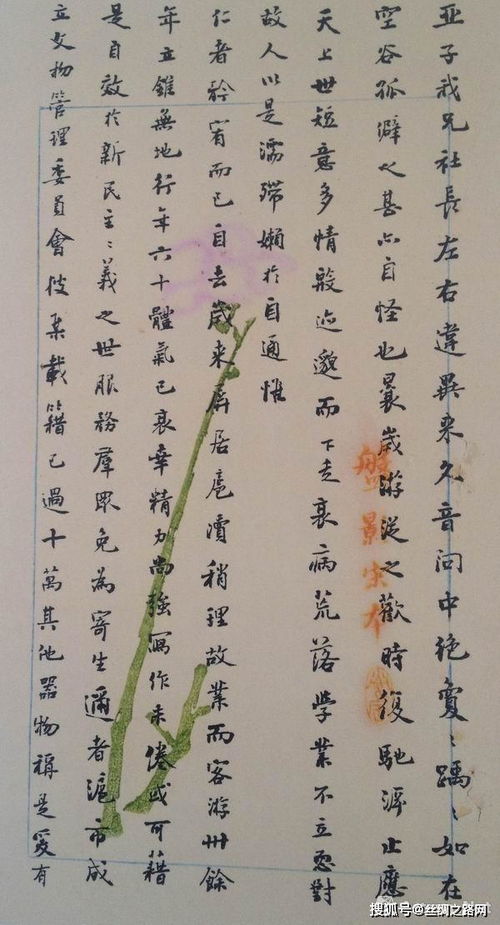 亚子我兄社長左右違異来久音问中絶夐〻踽〻如在
空谷孤癖之甚亦自怪也曩歲游從之歡時復馳溯止應
天上世短意多情殷迹邈而下走衰病荒落學業不立恧對
故人以是濡滯嬾於自通惟
仁者矜宥而已自去歲来屏居扈瀆稍理故業而客游卅餘
年立錐無地行年六十體氣已衰幸精力尚強寫作未倦或可藉
是自效於新民主〻義之世服務羣眾免為寄生邇者滬市成
立文物管理委員會集載籍已過十萬其他器物稱是爰有
景宋本
搜狐号@丝绸之路网